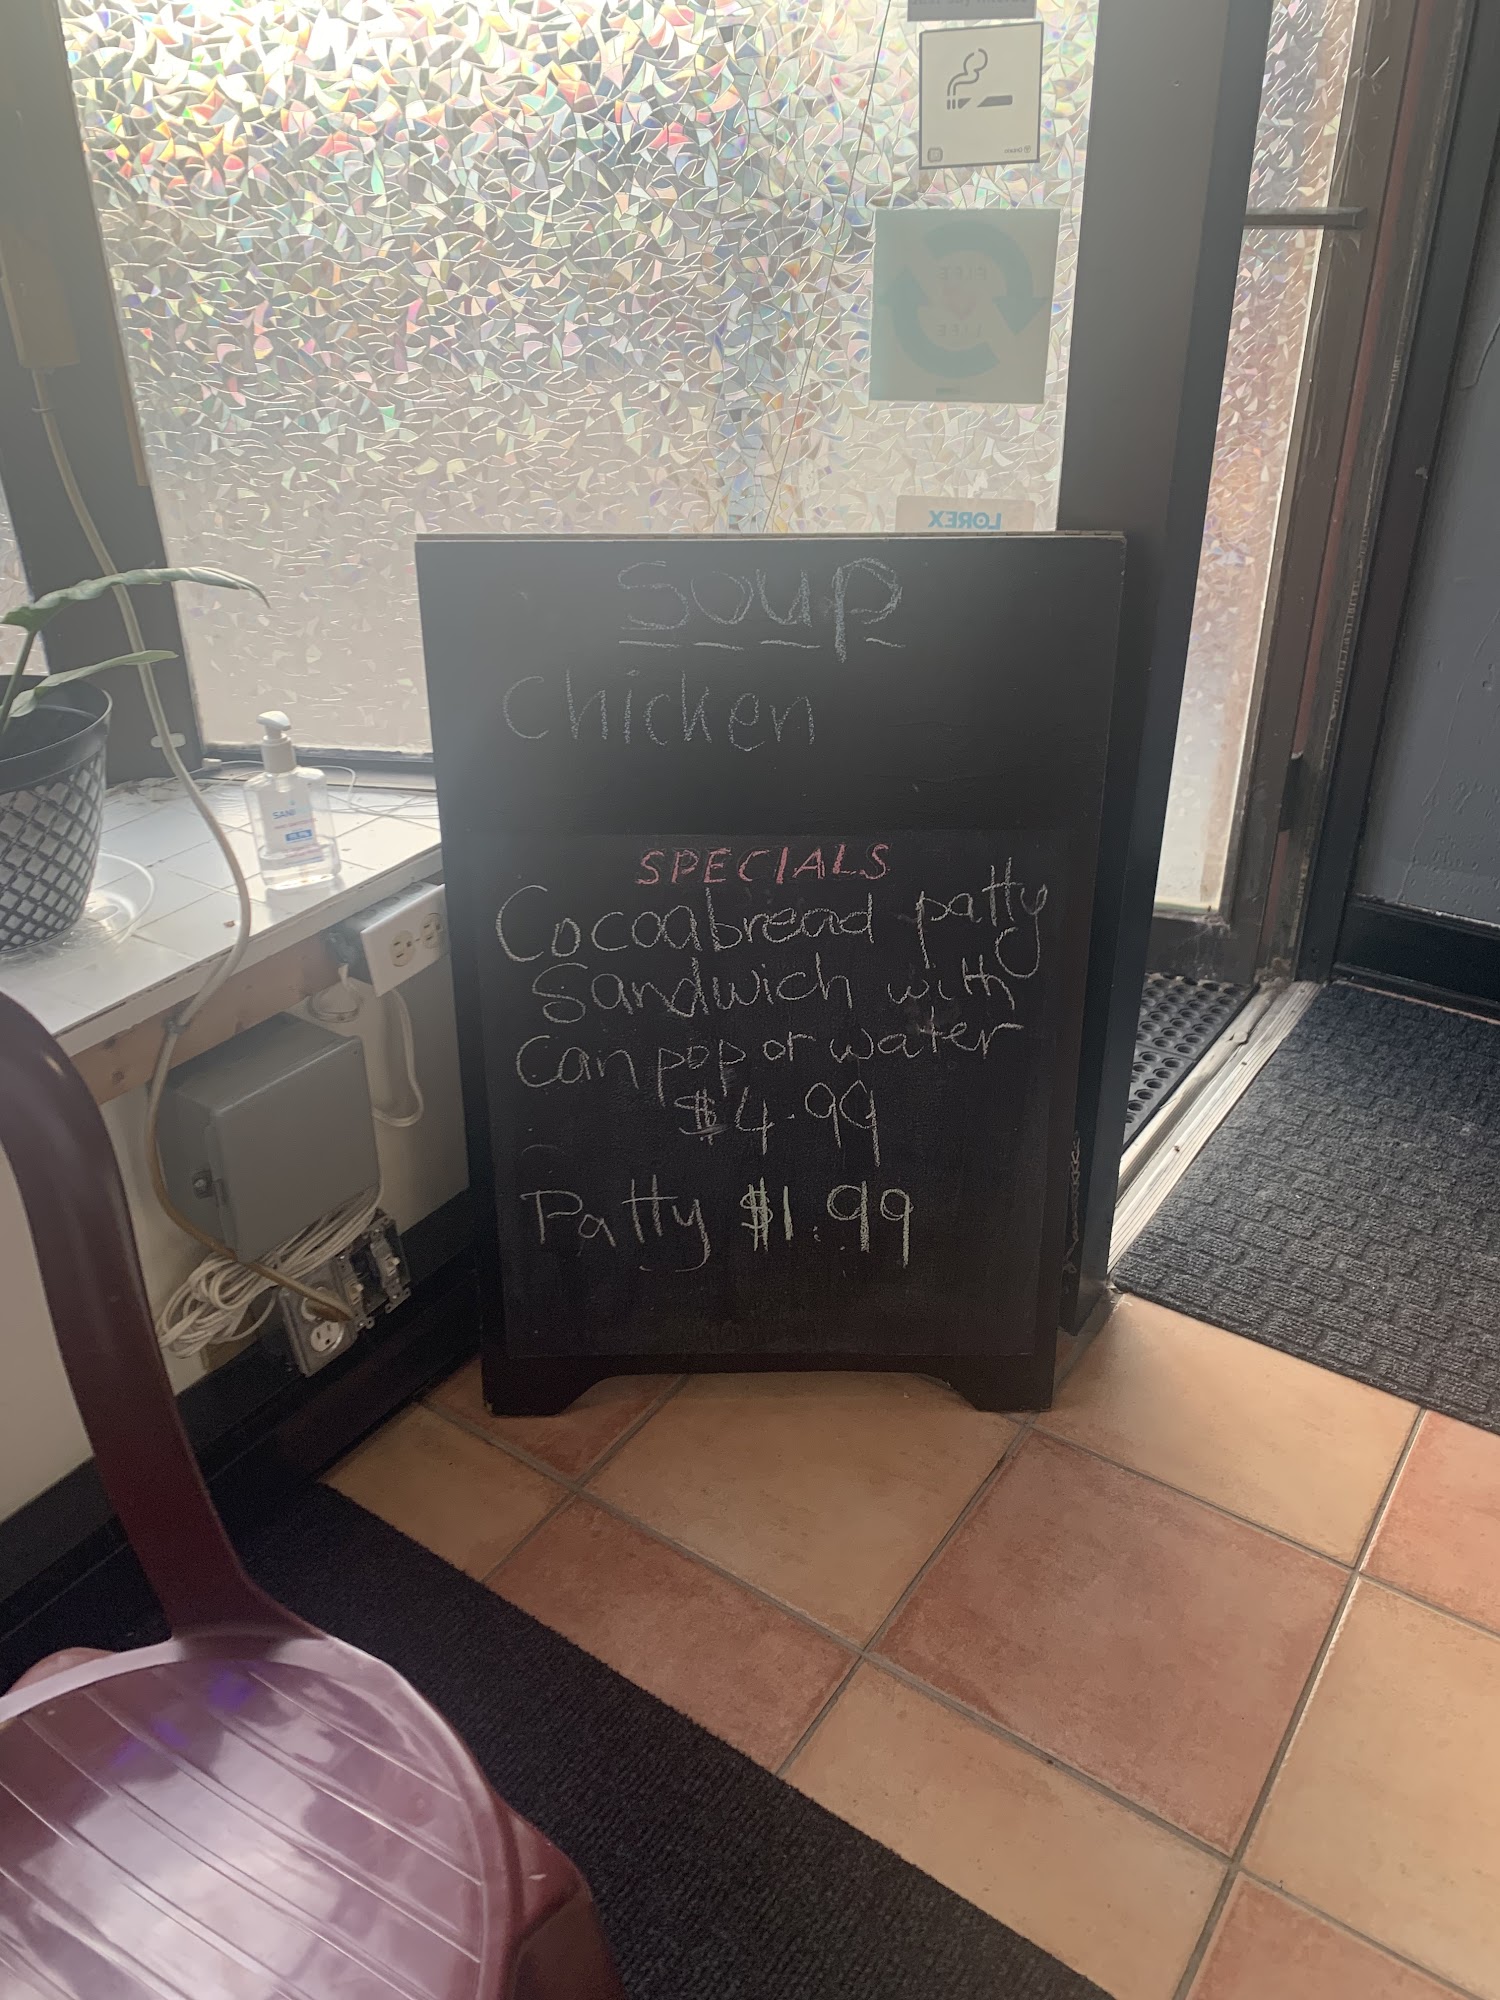 LOREX
Soup
Chicken
SANI
SPECIALS
Cocoabread patty
Sandwich with
Can pop or water
$4.99
Patty $1.99